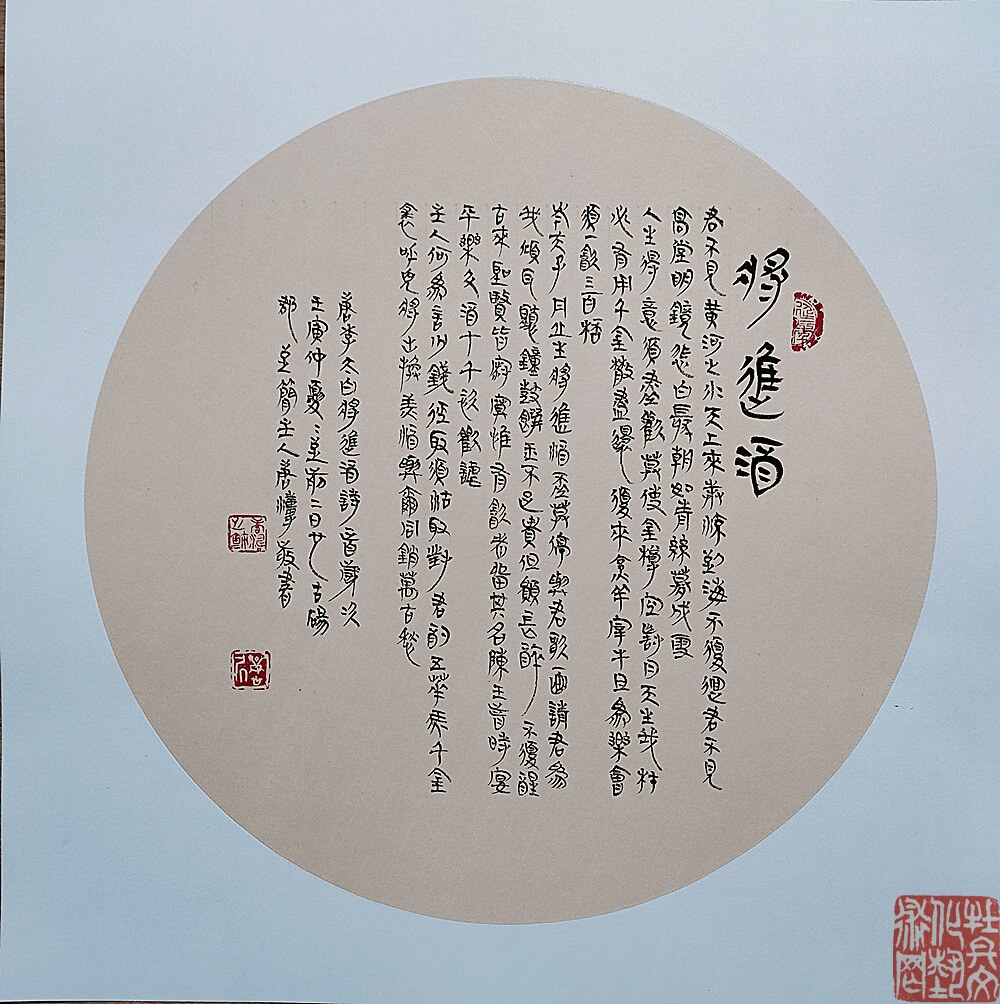 將進酒
君不見黃河之水天上來奔流到海不復還君不見
高堂明鏡悲白髮朝如青絲暮成雪
人生得意須盡歡莫使金樽空對月天生我材
必有用千金散盡還復來烹羊宰牛且為樂會
須一飲三百杯
岑夫子丹丘生將進酒杯莫停與君歌一曲請君為
我傾耳聽鐘鼓饌玉不足貴但願長醉不復醒
古來聖賢皆寂寞惟有飲者留其名陳王昔時宴
平樂斗酒十千恣歡謔
主人何為言少錢徑取須沽取對君酌五華馬千金
裘呼兒將出換美酒與爾同銷萬古愁
唐李太白將進酒詩一首歲次
壬寅仲夏〻至前二日於古碭
郡至簡主人唐敬書